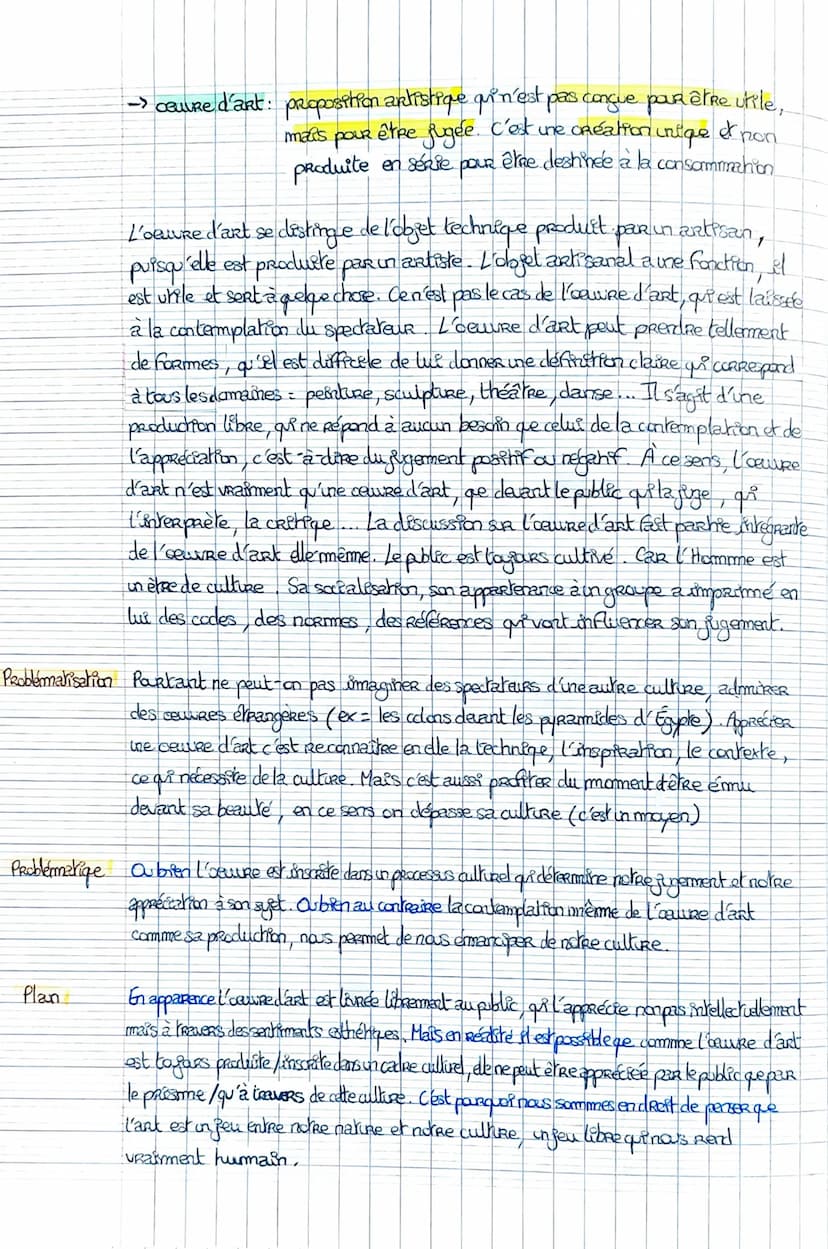 → œuvre d'art : proposition artistique qui n'est pas conçue pour être utile,
mais pour être jugée. C'est une création unique et non
produite en série pour être destinée à la consommation
L'œuvre d'art se distingue de l'objet technique produit par un artisan,
puisqu'elle est produite par un artiste. L'objet artisanal a une fonction, il
est utile et sert à quelque chose. Ce n'est pas le cas de l'œuvre d'art, qui est laissée
à la contemplation du spectateur. L'œuvre d'art peut prendre tellement
de formes, qu'il est difficile de lui donner une définition claire qui correspond
à tous les domaines : peinture, sculpture, théâtre, danse... Il s'agit d'une
production libre, qui ne répond à aucun besoin que celui de la contemplation et de
l'appréciation, c'est-à-dire du jugement positif ou négatif. À ce sens, l'œuvre
d'art n'est vraiment qu'une œuvre d'art, que devant le public qui la juge, qui
l'interprète, la critique... La discussion sur l'œuvre d'art fait partie intégrante
de l'œuvre d'art elle même. Le public est toujours cultivé. Car l'Homme est
un être de culture. Sa socialisation, son appartenance à un groupe a imprimé en
lui des codes, des normes, des références qui vont influencer son jugement.
Problématisation Partant ne peut-on pas imaginer des spectateurs d'une autre culture, admirer
des œuvres étrangères (ex = les colons devant les pyramides d'Égypte). Apprécier
une œuvre d'art c'est reconnaître en elle la technique, l'inspiration, le contexte,
ce qui nécessite de la culture. Mais c'est aussi profiter du moment d'être ému
devant sa beauté, en ce sens on dépasse sa culture (c'est un moyen)
Problématique Ou bien l'œuvre est inscrite dans un processus culturel qui détermine notre jugement et notre
appréciation à son sujet. Ou bien au contraire la contemplation même de l'œuvre d'art
comme sa production, nous permet de nous émanciper de notre culture.
Plan : En apparence l'œuvre d'art est livrée librement au public, qui l'apprécie non pas intellectuellement
mais à travers des sentiments esthétiques. Mais en réalité il est possible que comme l'œuvre d'art
est toujours produite / inscrite dans un cadre culturel, elle ne peut être appréciée par le public que par
le prisme / qu'à travers de cette culture. C'est pourquoi nous sommes en droit de penser que
l'art est un jeu entre notre nature et notre culture, un jeu libre qui nous rend
vraiment humain.